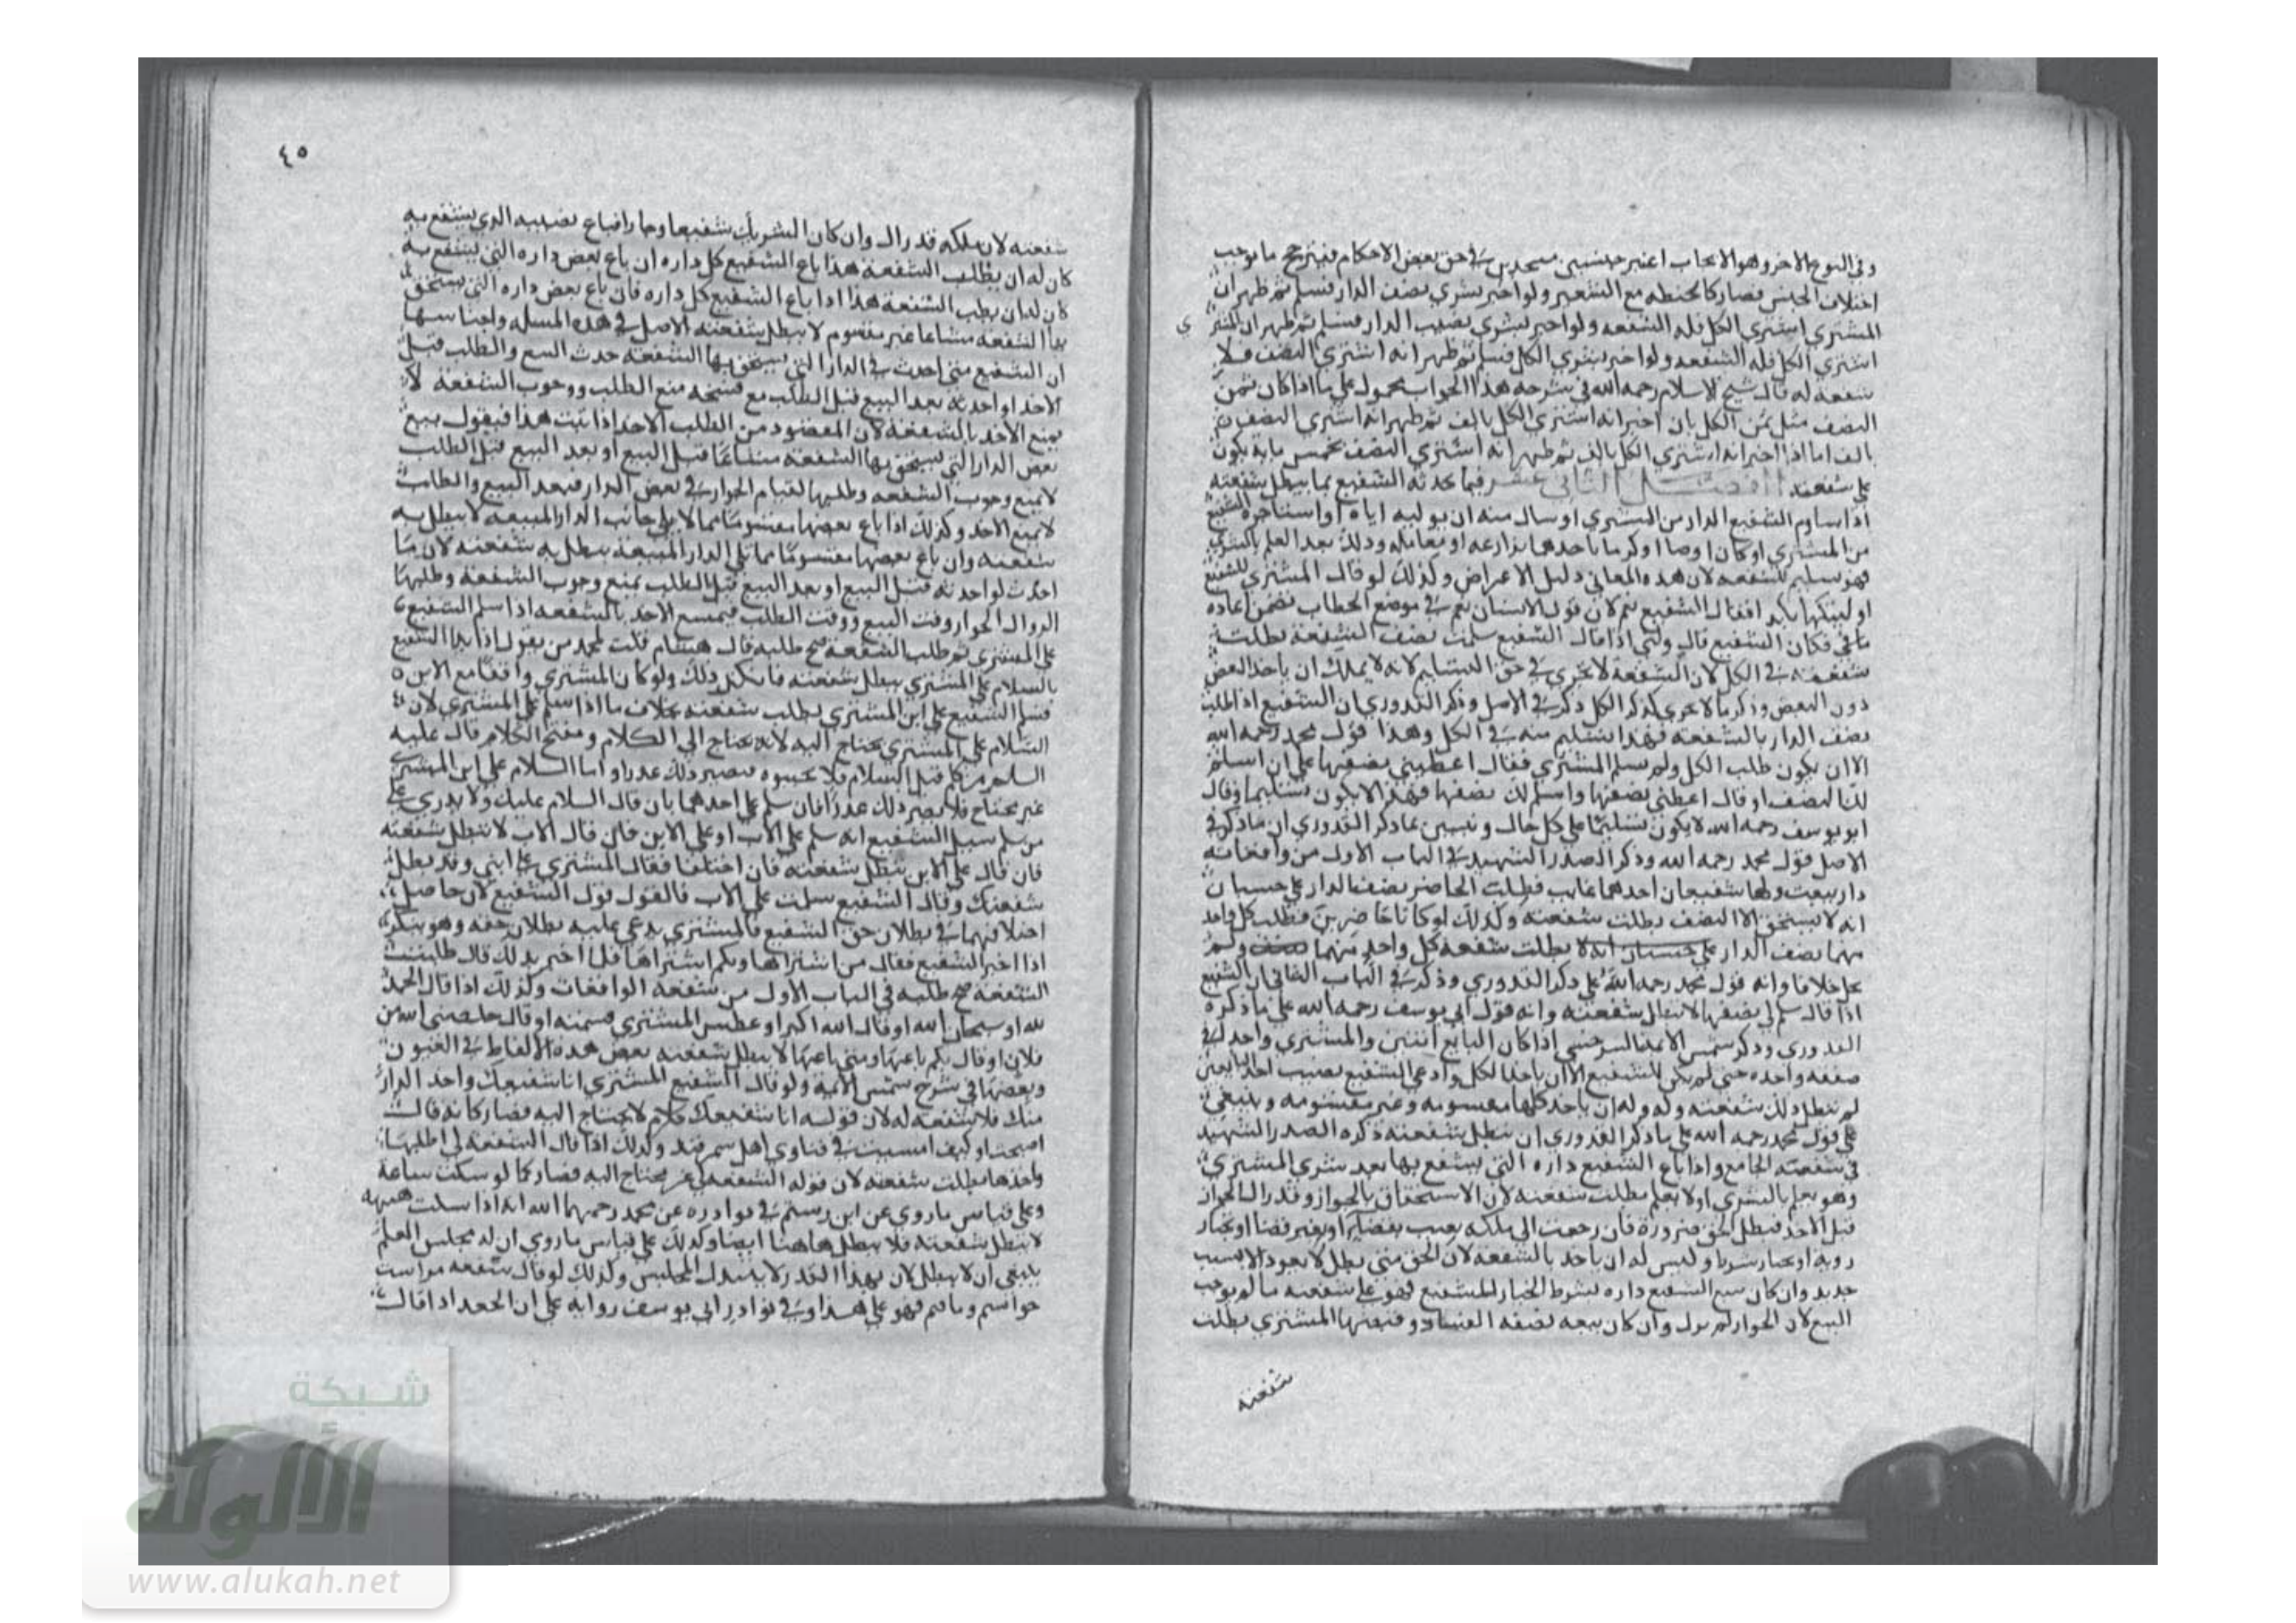 وفي النوع الاخر وهو الايجاب اعتبر جنسين في حق بعض الاحكام فيترجح ما يوجب
اختلاف الجنس فصار كالحنطه مع الشعير ولو اخبر بشري نصف الدار فسلم ثم ظهر ان
المشتري اشتري الكل فله الشفعه ولو اخبر بشري نصف الدار فسلم ثم ظهر ان المشتري
اشتري الكل فله الشفعه ولو اخبر بشري الكل فسلم ثم ظهر انه اشتري النصف فلا
شفعه له قال شيخ الاسلام رحمه الله في شرحه هذا الجواب محمول علي ما اذا كان ثمن
النصف مثل ثمن الكل بان اخبر انه اشتري الكل بالف ثم ظهر انه اشتري النصف
بالف اما اذا اخبر انه اشتري الكل بالف ثم ظهر انه اشتري النصف بخمس ماية يكون
علي شفعته الفصل الثاني عشر فيما يحدثه الشفيع مما يبطل شفعته
اذا ساوم الشفيع الدار من المشتري او سال منه ان يوليه اياه او استاجره الشفيع
من المشتري او كان ارضا او كرما ياخدها مزارعه او معامله وذلك بعد العلم بالشري
فهو تسليم للشفعه لان هذه المعاني دليل الاعراض وكذلك لو قال المشتري للشفيع
اوليتكها بكذا فقال الشفيع نعم لان قول الانسان نعم في موضع الخطاب تضمن اعاده
ما في فكان الشفيع قال ولني اذا قال الشفيع سلمت نصف الشفعة بطلت
شفعته في الكل لان الشفعة لا تتجزي في حق التسليم لانه لا يملك ان ياخد البعض
دون البعض وذكر ما لا يتجزي كذكر الكل ذكر في الاصل وذكر القدوري ان الشفيع اذا طلب
نصف الدار بالشفعه فهذا تسليم منه في الكل وهذا قول محمد رحمه الله
الا ان يكون طلب الكل ولم يسلم المشتري فقال اعطيني نصفها علي ان اسلم
لك النصف او قال اعطني نصفها واسلم لك نصفها فهذا لا يكون تسليما وقال
ابو يوسف رحمه الله لا يكون تسليما علي كل حال وتبين بما ذكر القدوري ان ما ذكر في
الاصل قول محمد رحمه الله وذكر الصدر الشهيد في الباب الاول من واقعاته
دار بيعت ولها شفيعان احدهما غايب فطلب الحاضر نصف الدار علي حسبان
انه لا يستحق الا النصف بطلت شفعته وكذلك لو كانا حاضرين فطلب كل واحد
منهما نصف الدار علي حسبان انه لا بطلت شفعه كل واحد منهما ولم
يحل خلافا وانه قول محمد رحمه الله علي ذكر القدوري وذكر في الباب الثاني ان الشفيع
اذا قال سلم لي نصفها لا تبطل شفعته وانه قول ابي يوسف رحمه الله علي ما ذكره
القدوري وذكر شمس الائمة السرخسي اذا كان البايع اثنين والمشتري واحد في
صفقه واحده حتي لم يكن للشفيع الا ان ياخد الكل وادعي الشفيع نصيب احد البايعين
لم تبطل بذلك شفعته وله ان ياخد كلها مقسومه وغير مقسومه وينبغي
علي قول محمد رحمه الله علي ما ذكر القدوري ان تبطل شفعته ذكره الصدر الشهيد
في شفعته الجامع واذا باع الشفيع داره التي يشفع بها بعد شري المشتري
وهو يعلم بالشري او لا يعلم بطلت شفعته لان الاستحقاق بالجوار وقد زال الجوار
قبل الاخد فبطل الحق ضرورة فان رجعت الي ملكه بعيب بقضاء او بغير قضا او بخيار
رويه او بخيار شرط وليس له ان ياخد بالشفعه لان الحق متي بطل لا يعود الا بسبب
جديد وان كان بيع الشفيع داره بشرط الخيار للشفيع فهو علي شفعته ما لم يوجب
البيع لان الجوار لم يزل وان كان بيعه بصفة الفساد وقبضها المشتري بطلت
شفعته
٤٥
شفعته لان ملكه قد زال وان كان الشريك شفيعا وجارا فباع نصيبه الذي يشفع به
كان له ان يطلب الشفعة هذا باع الشفيع كل داره ان باع بعض داره التي يشفع به
كان له ان يطلب الشفعة هذا اذا باع الشفيع كل داره فان باع بعض داره التي يستحق
بها الشفعه مشاعا غير مقسوم لا يبطل شفعته الاصل في هذه المسله واجناسها
ان الشفيع متي احدث في الدار التي يستحق بها الشفعه حدث البيع والطلب قبل
الاخد او احدثه بعد البيع قبل الطلب مع منع الطلب ووجوب الشفعة لان
يمنع الاخد بالشفعة لان المقصود من الطلب الاخد اذا ثبت هذا فيقول بيع
بعض الدار التي يستحق بها الشفعه مشاعا قبل البيع او بعد البيع قبل الطلب
لا يمنع وجوب الشفعه وطلبها لقيام الجوار في بعض الدار فبعد البيع والطلب
لا يمنع الاخد وكذلك اذا باع بعضها مقسوما مما لا يلي جانب الدار المبيعه لا يبطل به
شفعته وان باع بعضها مقسوما مما يلي الدار المبيعة يبطل به شفعته لان ما
احدث لو احدثه قبل البيع او بعد البيع قبل الطلب يمنع وجوب الشفعة وطلبها
لزوال الجوار وقت البيع ووقت الطلب فيمنع الاخد بالشفعه اذا سلم الشفيع
علي المشتري ثم طلب الشفعة صح طلبه قال هشام قلت لمحمد من يقول اذا بدا الشفيع
بالسلام علي المشتري يبطل شفعته فانكر ذلك ولو كان المشتري واقفا مع الابن
فسلم الشفيع علي ابن المشتري بطلب شفعته بخلاف ما اذا سلم علي المشتري لان
السلام علي المشتري يحتاج اليه لانه يحتاج الي الكلام ومفتح الكلام قال عليه
السلام من كلم قبل السلام فلا تجيبوه فيصير ذلك عذرا واما السلام علي ابن المشتري
غير محتاج فلا يصير ذلك عذرا فان سلم علي احدهما بان قال السلام عليك ولا يدري علي
من سلم سيل الشفيع انه سلم علي الاب او علي الابن فان قال الاب لا تبطل شفعته
فان قال علي الابن تبطل شفعته فان اختلفا فقال المشتري علي ابني وقد بطل
شفعتك وقال الشفيع سلمت علي الاب فالقول قول الشفيع لان حاصل
اختلافهما في بطلان حق الشفيع فالمشتري يدعي عليه بطلان حقه وهو ينكر
اذا اخبر الشفيع فقال من اشتراها وبكم اشتراها فلما اخبر بذلك قال طلبت
الشفعة صح طلبه في الباب الاول من شفعة الواقعات وكذلك اذا قال الحمد
لله او سبحان الله او قال الله اكبر او عطس المشتري فشمته او قال خلصني الله من
فلان او قال بكم باعها ومتي باعها لا يبطل شفعته بعض هذه الالفاظ في العيون
وبعضها في شرح شمس الائمة ولو قال الشفيع للمشتري انا شفيعك واخد الدار
منك فلا شفعه له لان قوله انا شفيعك كلام لا يحتاج اليه فصار كانه قال
اصبحت او كيف امسيت في فتاوي اهل سمرقند وكذلك اذا قال الشفعة لي اطلبها
واخدها بطلت شفعته لان قوله الشفعه لي غير محتاج اليه فصار كما لو سكت ساعة
وعلي قياس ما روي عن ابن رستم في نوادره عن محمد رحمهما الله انه اذا سكت هنيهه
لا تبطل شفعته فلا يبطل هاهنا ايضا وكذلك علي قياس ما روي ان له مجلس العلم
ينبغي ان لا يبطل لان بهذا القدر لا يتبدل المجلس وكذلك لو قال شفعه
فهو علي هذا وفي نوادر ابي يوسف رواية علي ان اذا قال
شبكة
الألوكة
www.alukah.net